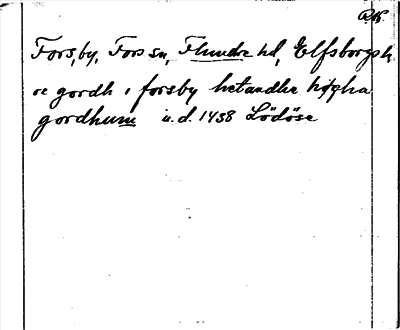 R.K.
Forsby, Fors sn, Flundre hd, Elfsborgs l.
oc gordh i forsby hetandhe høgha
gordhum u.d. 1438 Lödöse